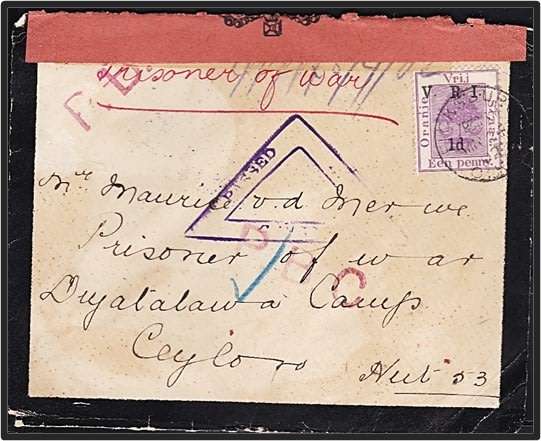 Prisoner of war
Vrij
Oranje
V. R. I.
1d
Een penny
PASSED
Mr Maurice v. d. Merwe
Prisoner of war
Diyatalawa Camp
Ceylon
Hut 53